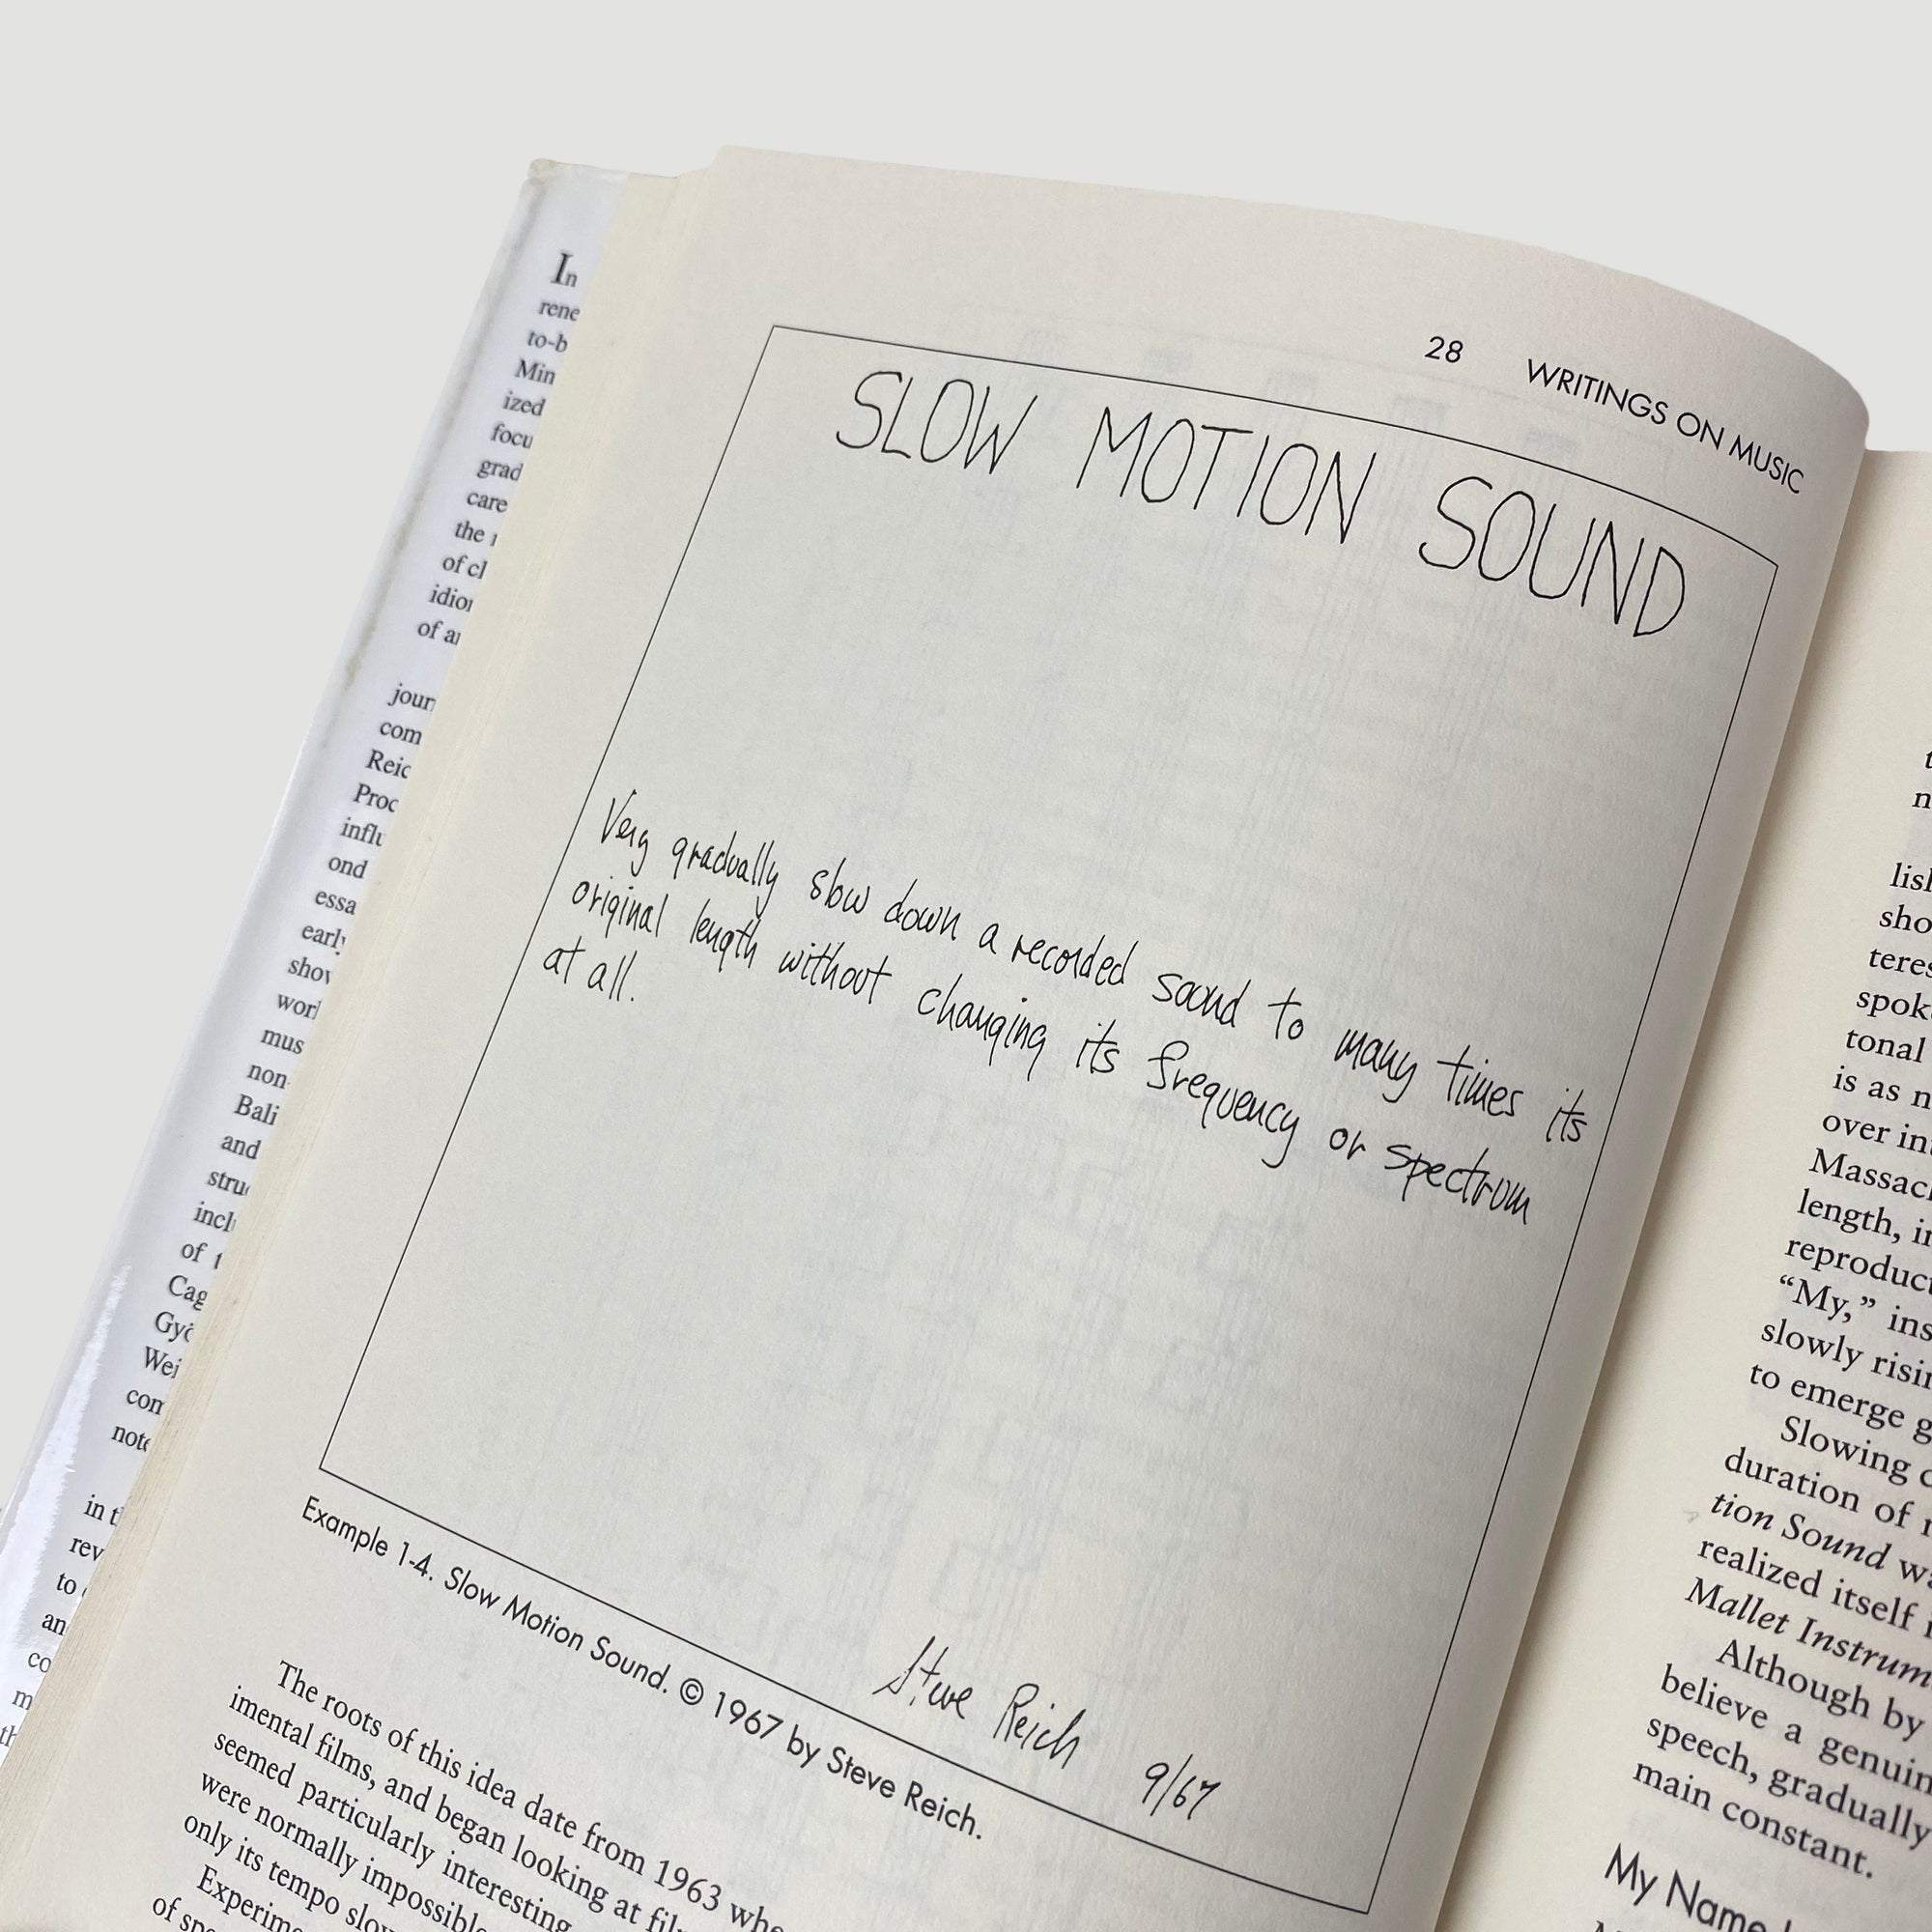 In
rene
to-b
Min
ized
focu
grad
care
the
of cl
of a
jour
com
Reic
Proc
influ
ond
essa
early
show
work
mus
non-
Bali
and
struc
incl
of t
Cag
Wei
com
note
in t
rev
to
an
co
28 WRITINGS ON MUSIC
SLOW MOTION SOUND
Very gradually slow down a recorded sound to many times its
original length without changing its frequency or spectrum
at all.
Steve Reich 9/67
Example 1-4. Slow Motion Sound. © 1967 by Steve Reich.
The roots of this idea date from 1963 whe
imental films, and began looking at fil
seemed particularly interesting
were normally impossible
only its tempo slow
Experime
of spe
t
n
lish
sho
teres
spok
tonal
is as n
over in
Massach
length, in
reproduct
“My,” ins
slowly risin
to emerge g
Slowing d
duration of
tion Sound wa
realized itself
Mallet Instrum
Although by
believe a genuin
speech, gradually
main constant.
My Name